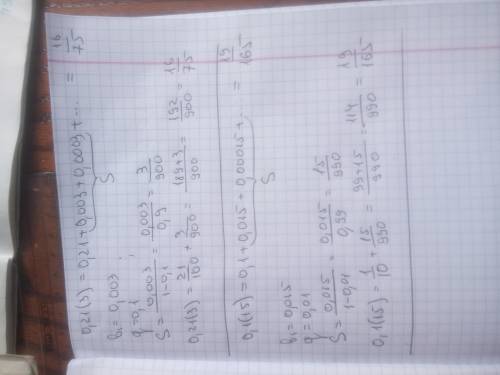 0,21(3) = 0,21 + 0,003 + 0,0003 + ... = 16/75
S
b₁ = 0,003 ;
q = 0,1
S = 0,003/(1-0,1) = 0,003/0,9 = 3/900
0,21(3) = 21/100 + 3/900 = (189+3)/900 = 192/900 = 16/75
0,1(15) = 0,1 + 0,015 + 0,00015 + ... = 19/165
S
b₁ = 0,015
q = 0,01
S = 0,015/(1-0,01) = 0,015/0,99 = 15/990
0,1(15) = 1/10 + 15/990 = (99+15)/990 = 114/990 = 19/165